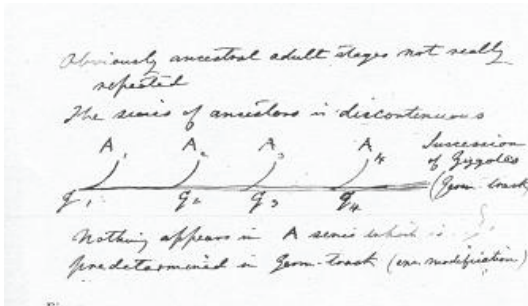 Obviously ancestral adult stages not really
repeated
The series of ancestors is discontinuous
A1 A2 A3 A4 Succession
of Zygotes
(Germ track
q1 q2 q3 q4
Nothing appears in A series which is
predetermined in Germ-track (exc. modification)